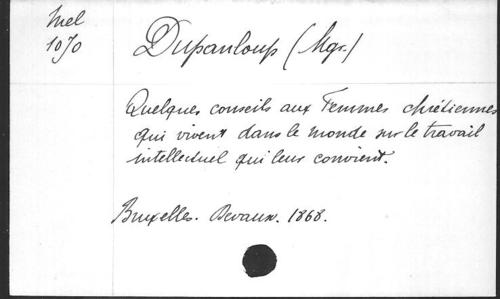 Mel
1070
Dupanloup (Mgr.)
Quelques conseils aux Femmes chrétiennes
qui vivent dans le monde sur le travail
intellectuel qui leur convient.
Bruxelles. Devaux. 1868.